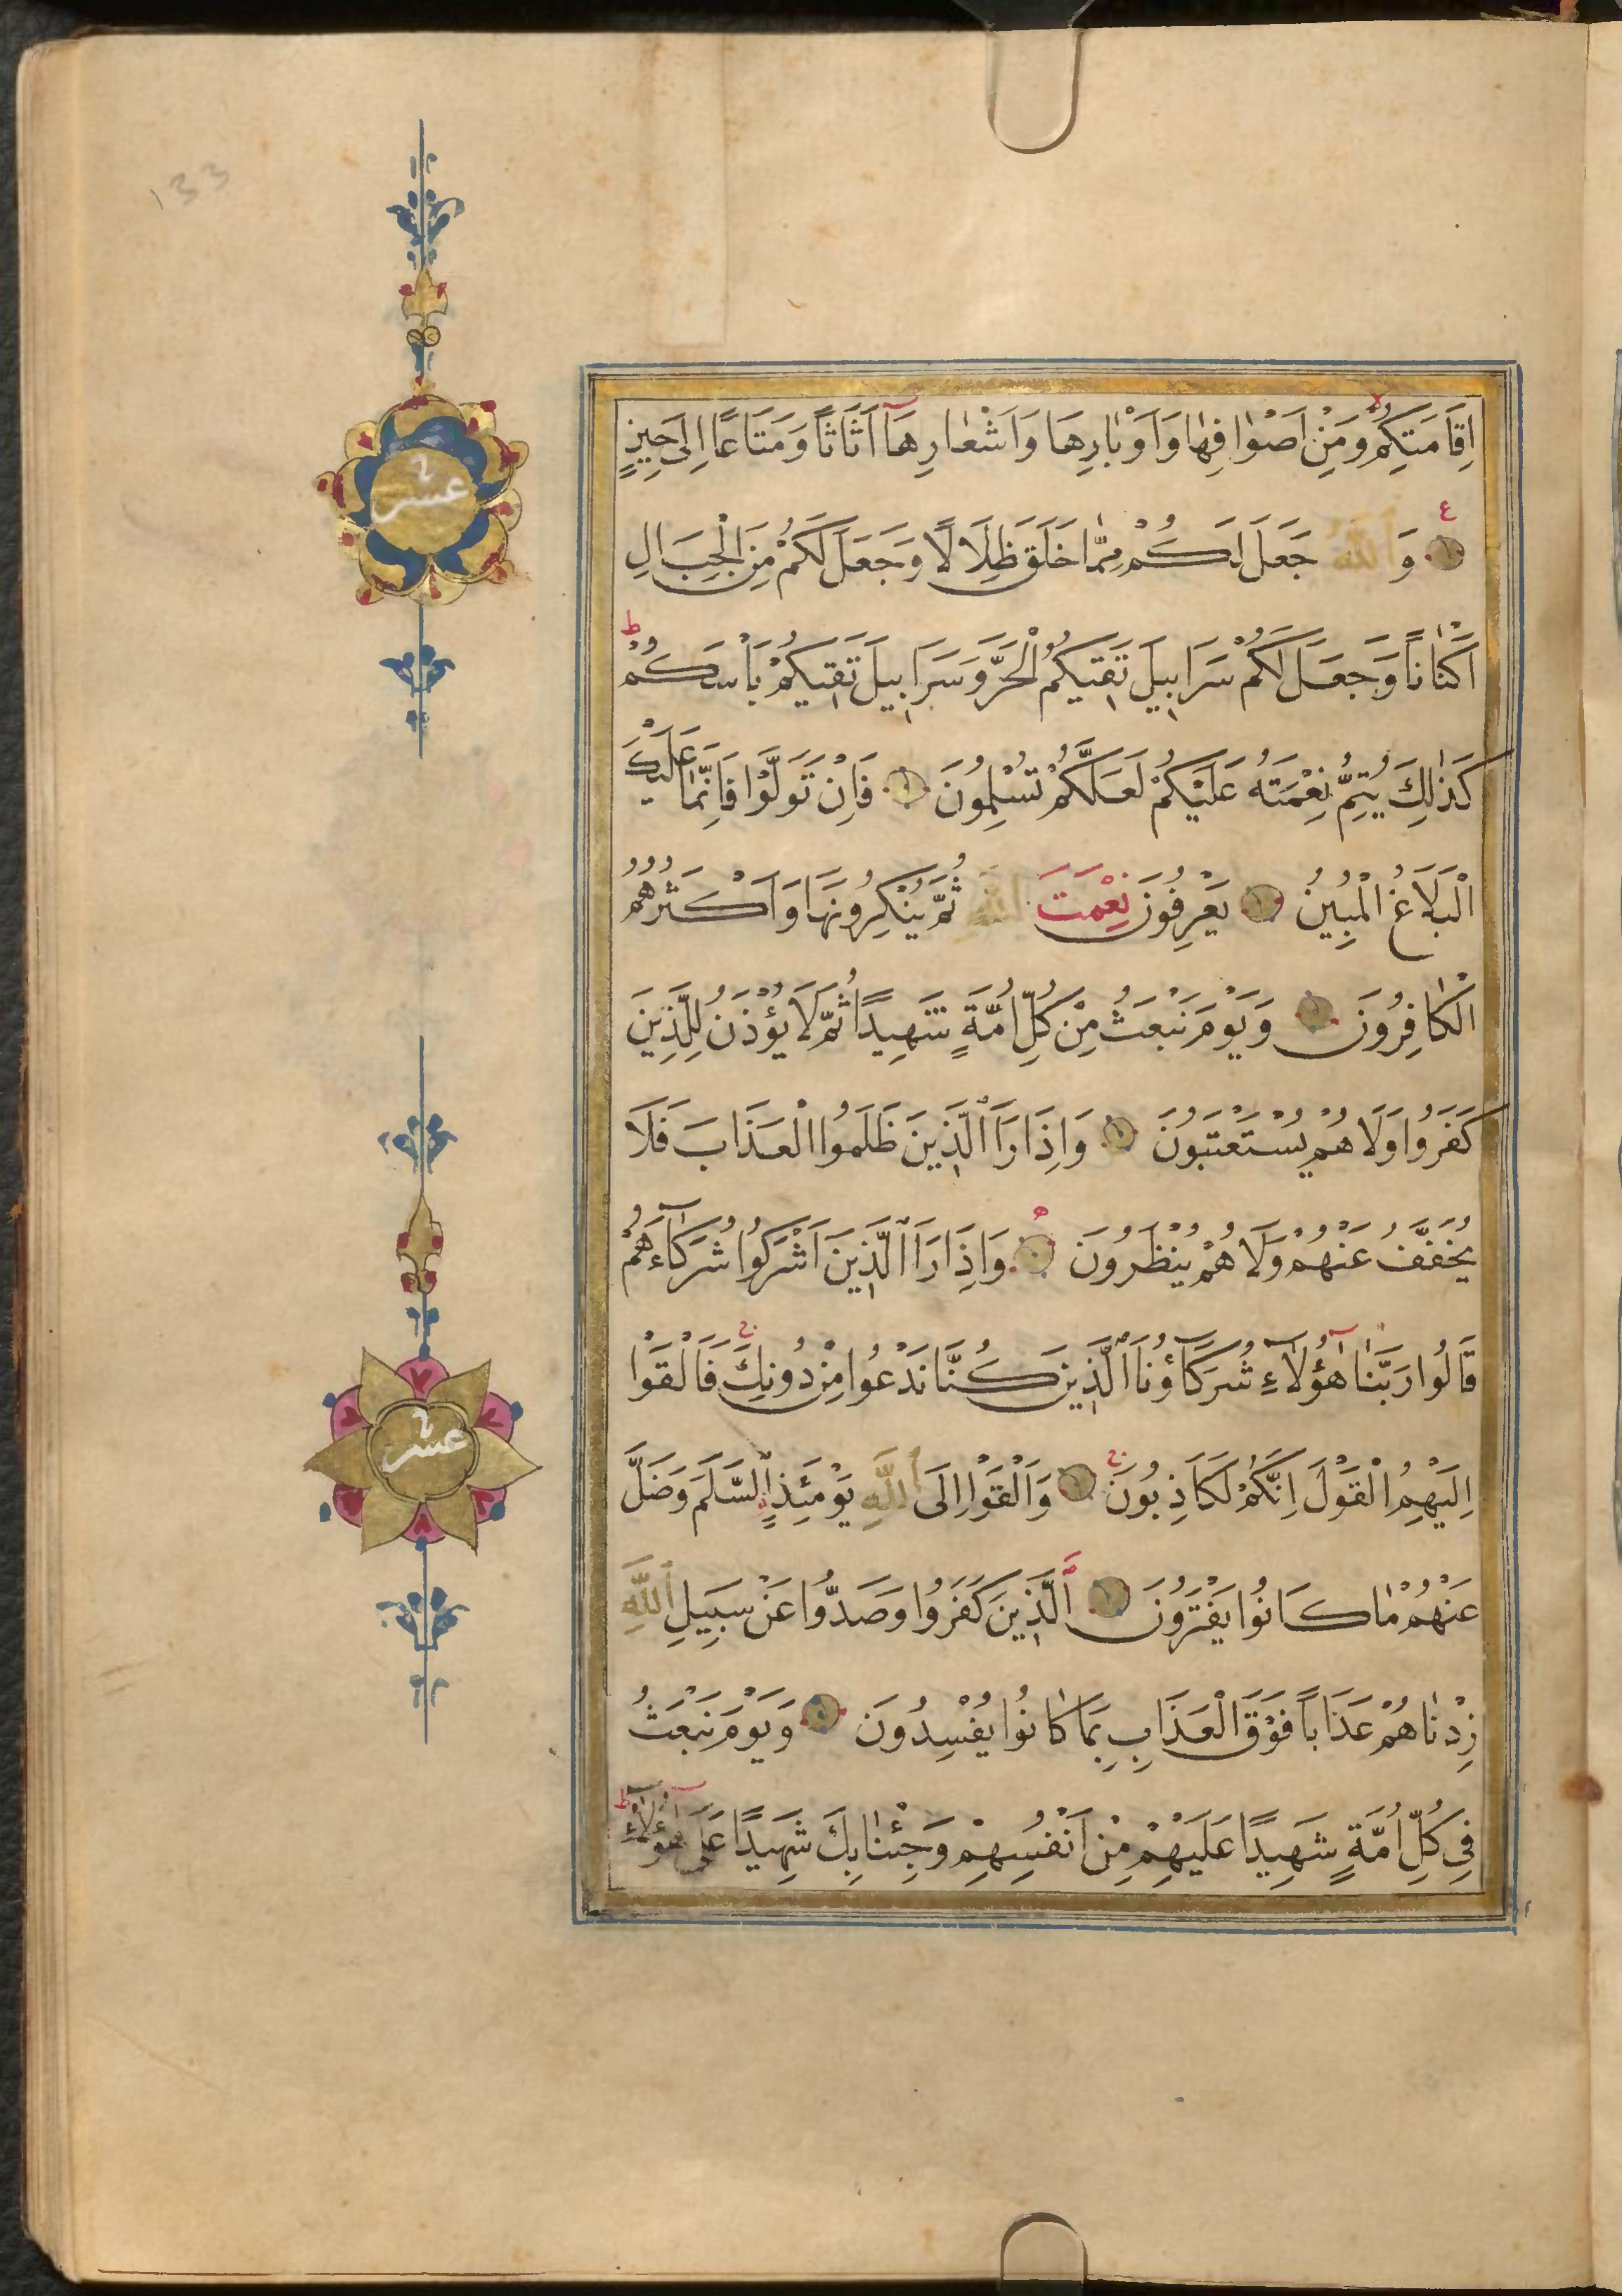 اِقَامَتِكُمْ وَمِنْ اَصْوَافِهَا وَاَوْبَارِهَا وَاَشْعَارِهَا اَثَاثًا وَمَتَاعًا اِلٰى حِينٍ
وَاللّٰهُ جَعَلَ لَكُمْ مِمَّا خَلَقَ ظِلَالًا وَجَعَلَ لَكُمْ مِنَ الْجِبَالِ
اَكْنَانًا وَجَعَلَ لَكُمْ سَرَابِيلَ تَقِيكُمُ الْحَرَّ وَسَرَابِيلَ تَقِيكُمْ بَاْسَكُمْ
كَذٰلِكَ يُتِمُّ نِعْمَتَهُ عَلَيْكُمْ لَعَلَّكُمْ تُسْلِمُونَ فَاِنْ تَوَلَّوْا فَاِنَّمَا عَلَيْكَ
الْبَلَاغُ الْمُبِينُ يَعْرِفُونَ نِعْمَتَ اللّٰهِ ثُمَّ يُنْكِرُونَهَا وَاَكْثَرُهُمُ
الْكَافِرُونَ وَيَوْمَ نَبْعَثُ مِنْ كُلِّ اُمَّةٍ شَهِيدًا ثُمَّ لَا يُؤْذَنُ لِلَّذِينَ
كَفَرُوا وَلَا هُمْ يُسْتَعْتَبُونَ وَاِذَا رَاَ الَّذِينَ ظَلَمُوا الْعَذَابَ فَلَا
يُخَفَّفُ عَنْهُمْ وَلَا هُمْ يُنْظَرُونَ وَاِذَا رَاَ الَّذِينَ اَشْرَكُوا شُرَكَاءَهُمْ
قَالُوا رَبَّنَا هٰؤُلَاءِ شُرَكَاؤُنَا الَّذِينَ كُنَّا نَدْعُوا مِنْ دُونِكَ فَاَلْقَوْا
اِلَيْهِمُ الْقَوْلَ اِنَّكُمْ لَكَاذِبُونَ وَاَلْقَوْا اِلَى اللّٰهِ يَوْمَئِذٍ السَّلَمَ وَضَلَّ
عَنْهُمْ مَا كَانُوا يَفْتَرُونَ اَلَّذِينَ كَفَرُوا وَصَدُّوا عَنْ سَبِيلِ اللّٰهِ
زِدْنَاهُمْ عَذَابًا فَوْقَ الْعَذَابِ بِمَا كَانُوا يُفْسِدُونَ وَيَوْمَ نَبْعَثُ
فِي كُلِّ اُمَّةٍ شَهِيدًا عَلَيْهِمْ مِنْ اَنْفُسِهِمْ وَجِئْنَا بِكَ شَهِيدًا عَلٰى هٰؤُلَاءِ
عشر
عشر
133